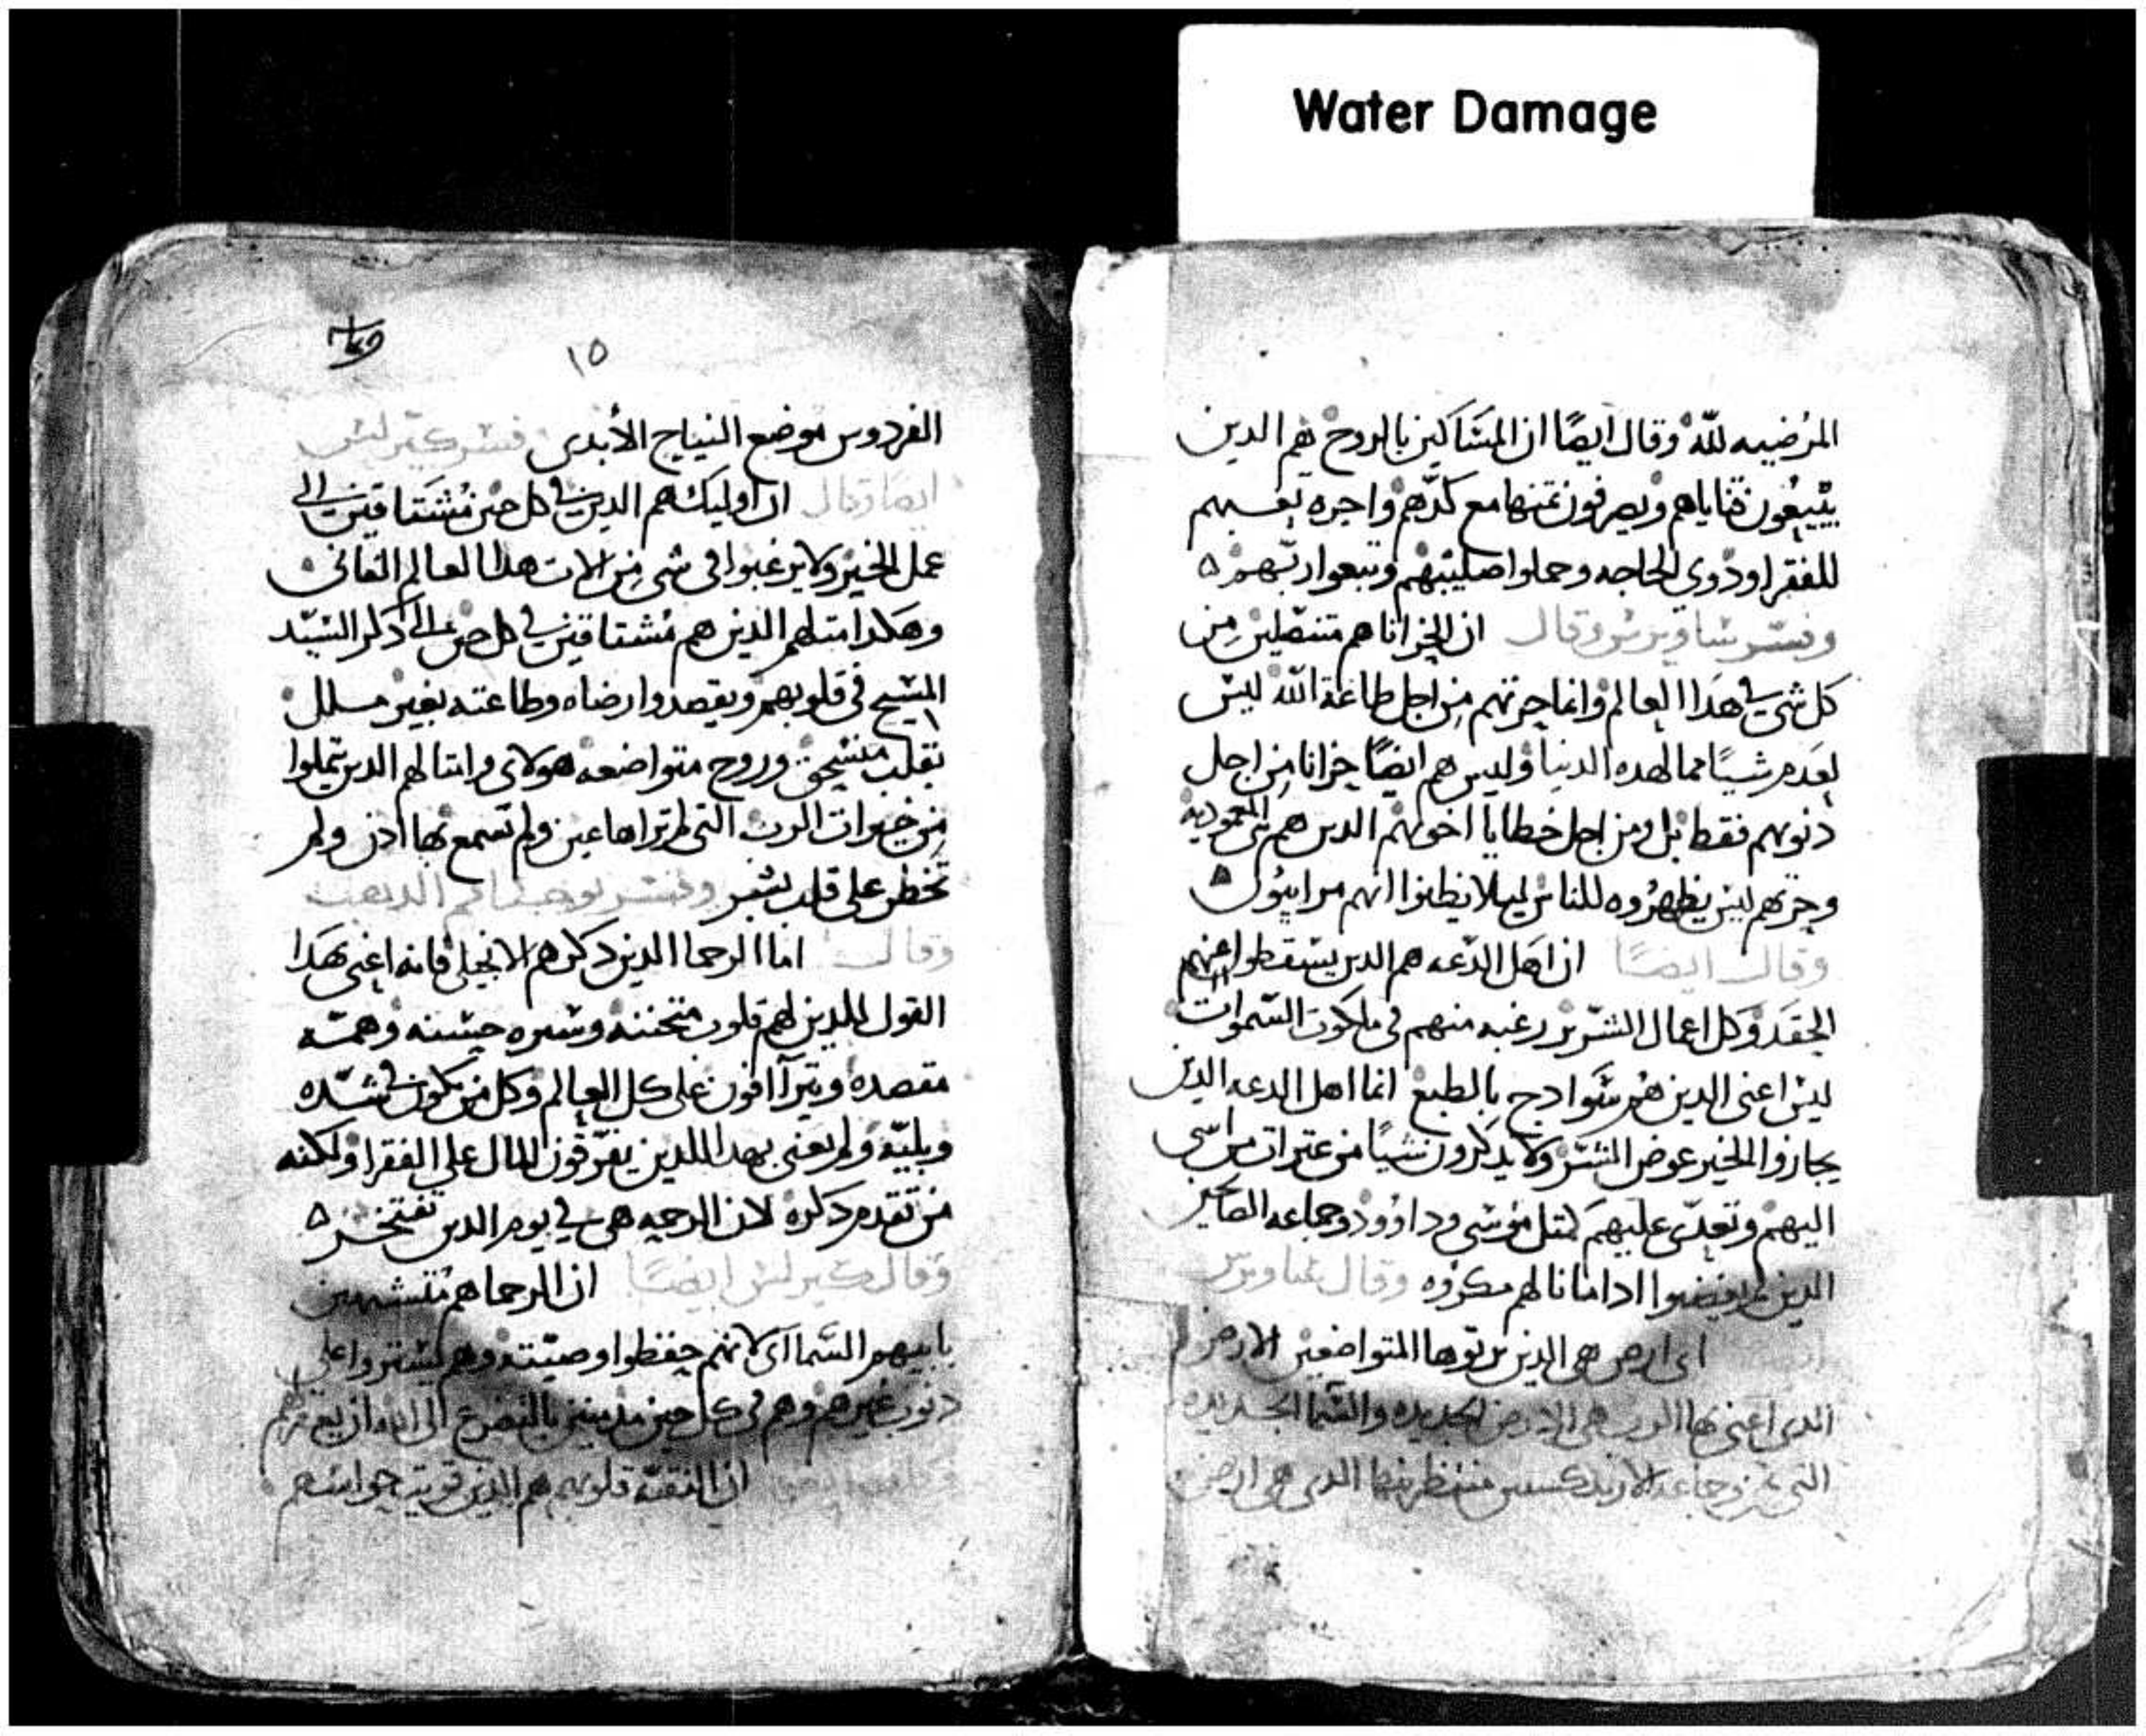 Water Damage
المرضيه لله وقال ايضًا ان المساكين بالروح هم الدين
يبيعون قناياهم ويصرفون تمنها مع كدهم واجره نفسهم
للفقرا ودوي الحاجه وحملوا صليبهم وتبعوا ربهم
وفسر ساويرس وقال ان الحزانا هم متنصلين من
كل شي في هدا العالم وانما حزنهم من اجل طاعة الله ليس
لعدم شيًا مما لهده الدنيا وليس هم ايضًا حزانا من اجل
دنوبهم فقط بل ومن اجل خطايا اخوتهم الدين هم بني المعموديه
وحزنهم ليس يظهروه للناس ليلا يظنوا انهم مراييون
وقال ايضًا ان اهل الدعه هم الدين يسقطوا عنهم
الحقد وكل اعمال الشرير رغبه منهم في ملكوت السموات
ليس اعني الدين هم سوادج بالطبع انما اهل الدعه الدين
يجازوا الخير عوض الشر ولا يدكرون شيًا من عترات من اسى
اليهم وتعدى عليهم كمتل موسى وداوود وجماعه
الدين لم يغضبوا ادا ما نالهم مكروه وقال ساويرس
اي ارض هي الدين يرتوها المتواضعين الارض
الدي اعني بها الرب هي الارض الجديده والسما الجديده
التي الدي هي ارض
١٥
الفردوس موضع النياح الأبدي فسر كيرلس
ايضًا وقال ان اوليك هم الدين في كل حين مشتاقين الى
عمل الخير ولا يرغبوا في شي من الات هدا العالم الفاني
وهكدا امتالهم الدين هم مشتاقين في كل حين الى دكر السيد
المسيح في قلوبهم ويقصدوا رضاه وطاعته بغير ملل
بقلب منسحق وروح متواضعه هولاي وامتالهم الدين يتملوا
من خيرات الرب التي لم تراها عين ولم تسمع بها ادن ولم
تخطر على قلب بشر وفسر يوحنا فم الدهب
وقال اما الرحما الدين دكرهم الانجيل فانه اعني بهدا
القول للدين لهم قلوب متحننه وسيره حسنه وهمه
مقصده ويتراافون على كل العالم وكل من يكون في شده
وبليه ولم يعني بهدا للدين يفرقون المال على الفقرا ولكنه
من تقدم دكره لان الرحمه هي في يوم الدين تفتخر
وقال كيرلس ايضًا ان الرحما هم متشبهين
بابيهم السماي لانهم حفظوا وصيته وهم يستروا على
دنوب غيرهم وهم في كل حين مدمنين بالتضرع الى الله ان يغفر لهم
ان النقيه قلوبهم هم الدين حواسهم